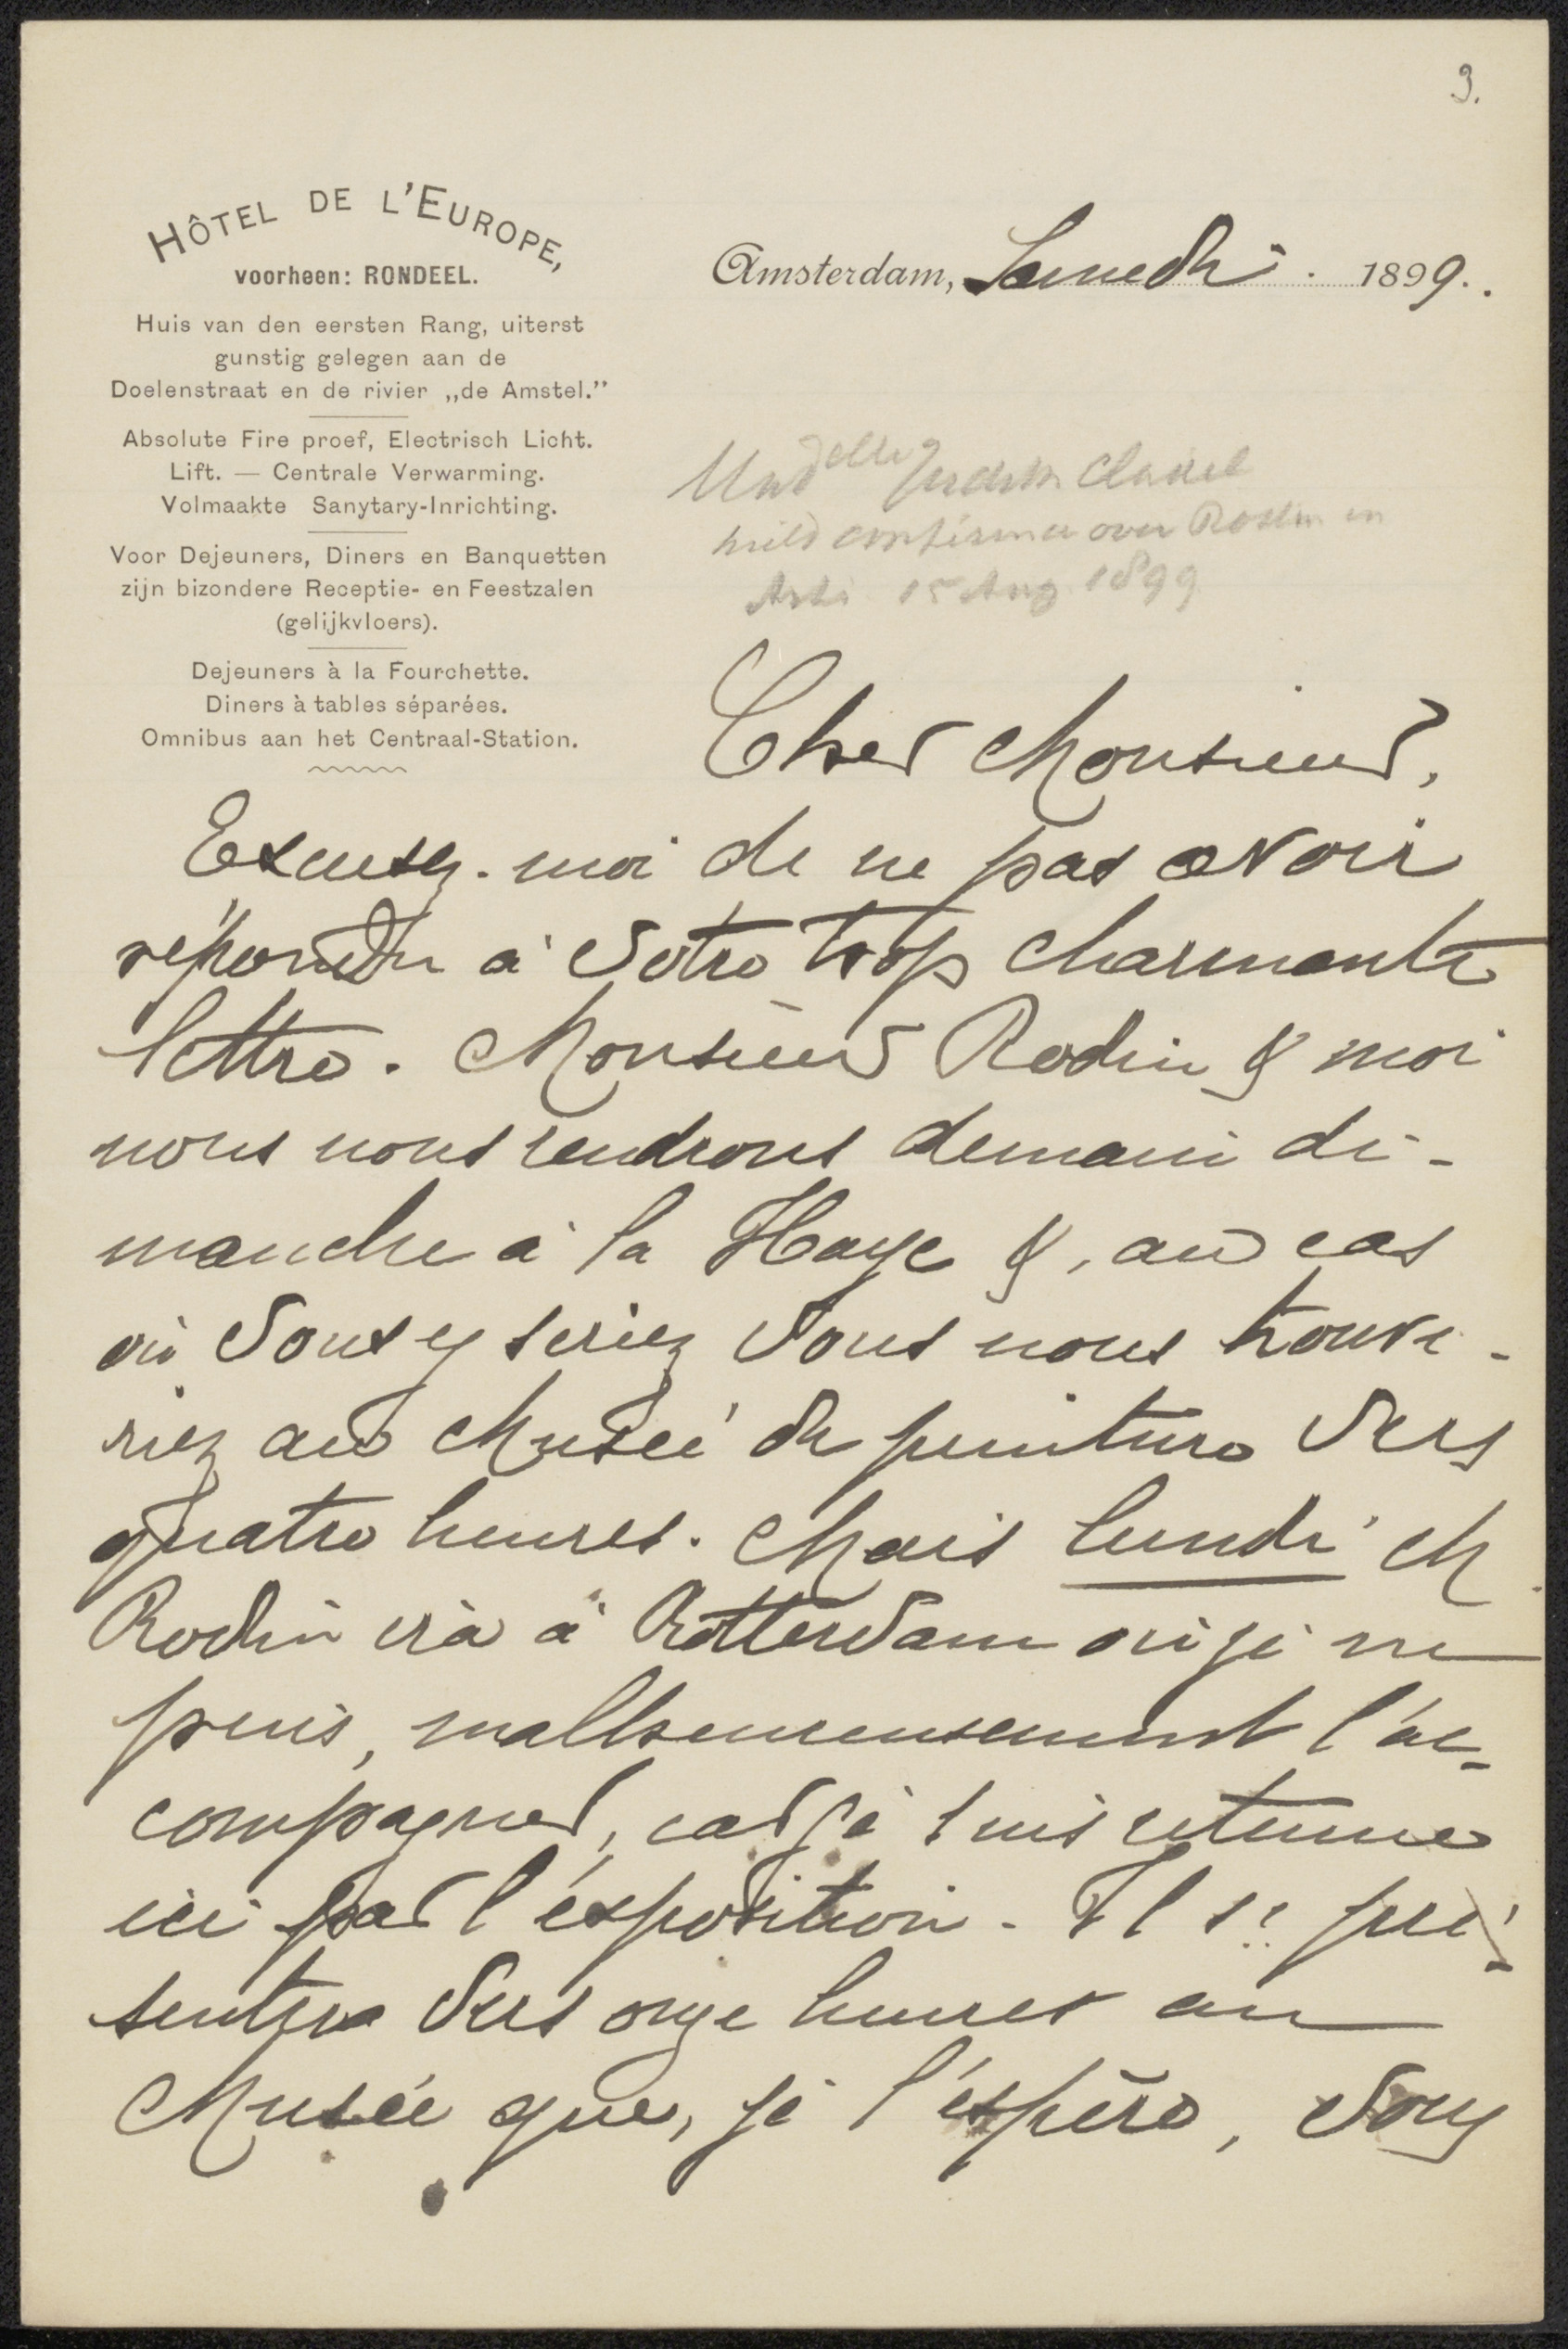 3.
HÔTEL DE L'EUROPE,
voorheen: RONDEEL.
Huis van den eersten Rang, uiterst
gunstig gelegen aan de
Doelenstraat en de rivier „de Amstel.”
Absolute Fire proef, Electrisch Licht.
Lift. — Centrale Verwarming.
Volmaakte Sanytary-Inrichting.
Voor Dejeuners, Diners en Banquetten
zijn bizondere Receptie- en Feestzalen
(gelijkvloers).
Dejeuners à la Fourchette.
Diners à tables séparées.
Omnibus aan het Centraal-Station.
Amsterdam, Samedi 1899.
Madelle Judith Cladel
hield over Rodin in
Arti 15 Aug 1899
Cher Monsieur,
Excusez-moi de ne pas avoir
répondu à votre trop charmante
lettre. Monsieur Rodin & moi
nous nous rendrons demain di-
manche à la Haye &, au cas
où vous y seriez vous nous trouve-
riez au Musée de peinture vers
quatre heures. Mais lundi M.
Rodin ira à Rotterdam où je ne
puis, malheureusement l'ac-
compagner, car je suis retenue
ici par l'exposition. Il se pré-
sentera vers onze heures au
Musée que, je l'espère, vous